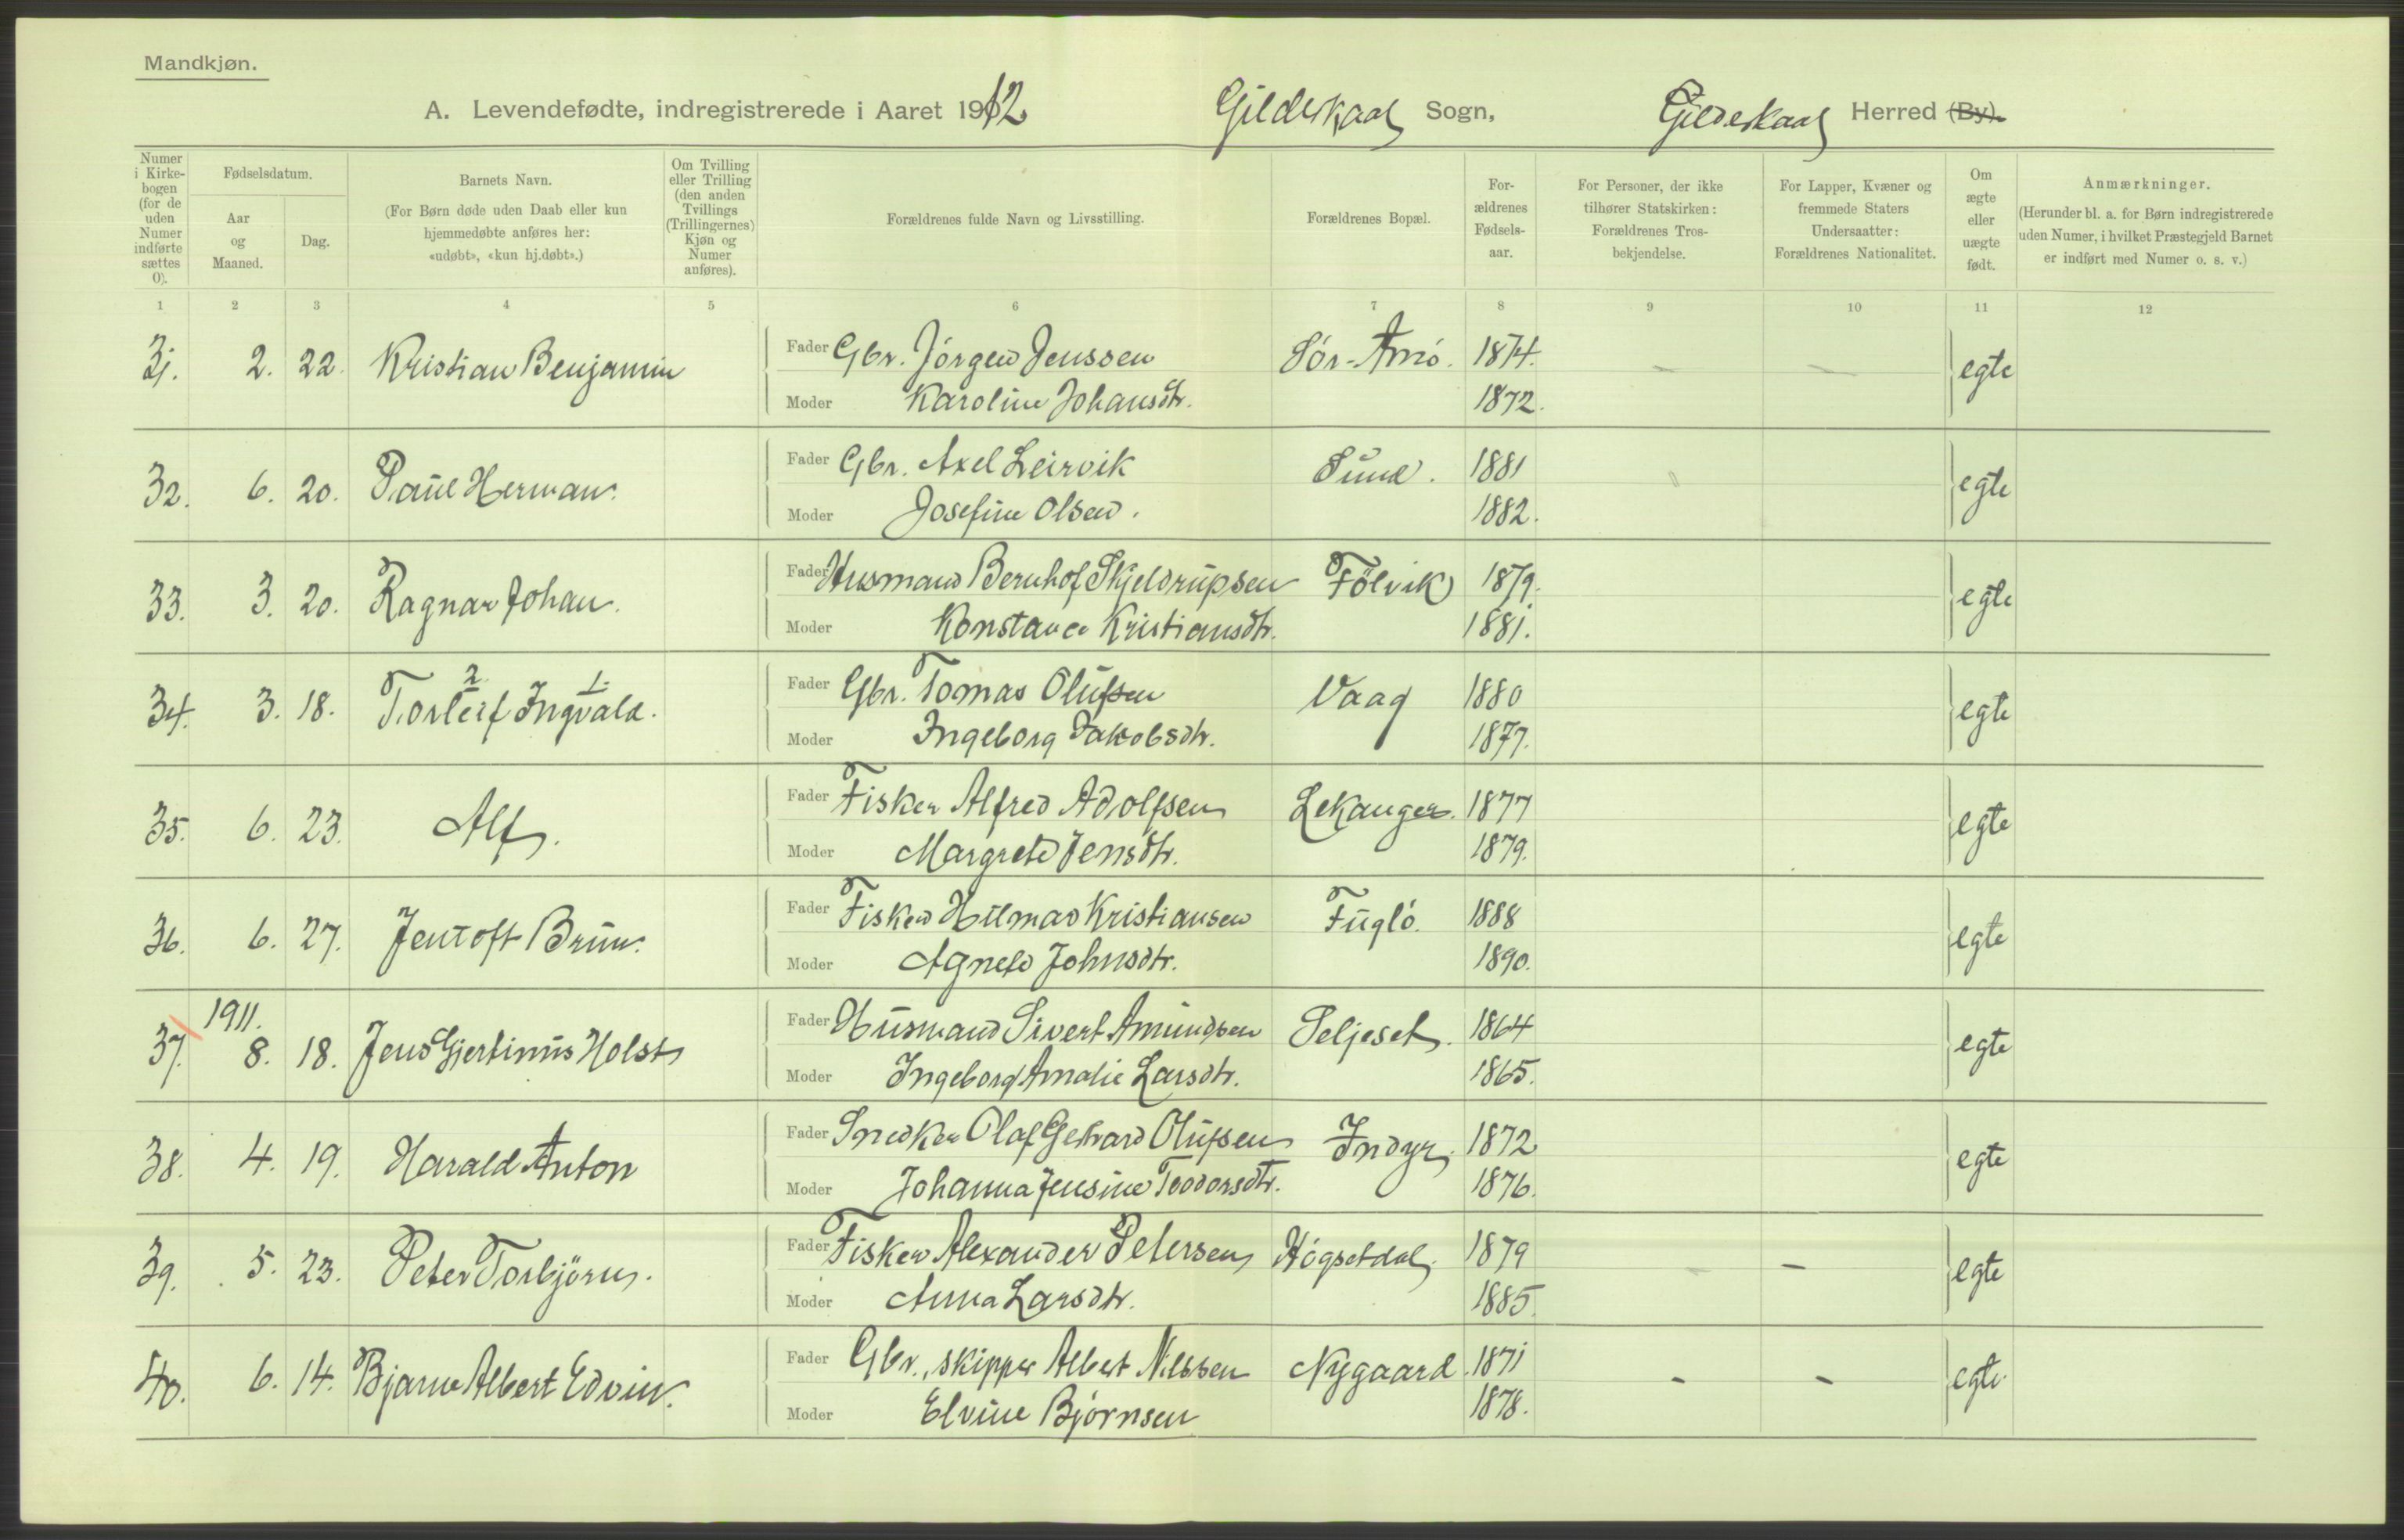 Mandkjøn.
A. Levendefødte, indregistrerede i Aaret 1912 Gildeskaal Sogn, Gildeskaal Herred (By).
Numer i Kirkebogen (for de uden Numer indførte sættes 0).
Fødselsdatum.
Aar og Maaned.
Dag.
Barnets Navn.
(For Børn døde uden Daab eller kun hjemmedøbte anføres her: «udøbt», «kun hj.døbt».)
Om Tvilling eller Trilling (den anden Tvillings (Trillingernes) Kjøn og Numer anføres).
Forældrenes fulde Navn og Livsstilling.
Forældrenes Bopæl.
Forældrenes Fødselsaar.
For Personer, der ikke tilhører Statskirken: Forældrenes Trosbekjendelse.
For Lapper, Kvæner og fremmede Staters Undersaatter: Forældrenes Nationalitet.
Om ægte eller uægte født.
Anmærkninger.
(Herunder bl. a. for Børn indregistrerede uden Numer, i hvilket Præstegjeld Barnet er indført med Numer o. s. v.)
1 2 3 4 5 6 7 8 9 10 11 12
31. 2. 22. Kristian Benjamin Fader Gbr. Jörgen Jenssen Sör-Arnö. 1874. — — egte
Moder Karoline Johansdtr. 1872.
32. 6. 20. Paul Herman. Fader Gbr. Axel Leirvik Sund. 1881 egte
Moder Josefine Olsen. 1882.
33. 3. 20. Ragnar Johan. Fader Husmand Bernhof Skjeldrupsen Fölvik 1879. egte
Moder Konstance Kristiansdtr. 1881.
2. 1.
34. 3. 18. Torleif Ingvald. Fader Gbr. Tomas Olufsen Vaag 1880 egte
Moder Ingeborg Jakobsdtr. 1877.
35. 6. 23. Alf. Fader Fisker Alfred Adolfsen Lekanger. 1877 egte
Moder Margrete Jensdtr. 1879.
36. 6. 27. Jentoft Brun. Fader Fisker Hilmar Kristiansen Fuglö. 1888 egte
Moder Agnete Johnsdtr. 1890.
1911.
37. 8. 18. Jens Gjertinus Holst Fader Husmand Sivert Amundsen Seljeset. 1864 egte
Moder Ingeborg Amalie Larsdtr. 1865.
38. 4. 19. Harald Anton Fader Snedker Olaf Gerhard Olufsen Indyr. 1872 egte
Moder Johanna Jensine Teodorsdtr. 1876.
39. 5. 23. Peter Torbjörn. Fader Fisker Alexander Petersen Högsetdal. 1879 — — egte
Moder Anna Larsdtr. 1885.
40. 6. 14. Bjarne Albert Edvin. Fader Gbr., skipper Albert Nilssen Nygaard. 1871 — — egte.
Moder Elvine Björnsen 1878.